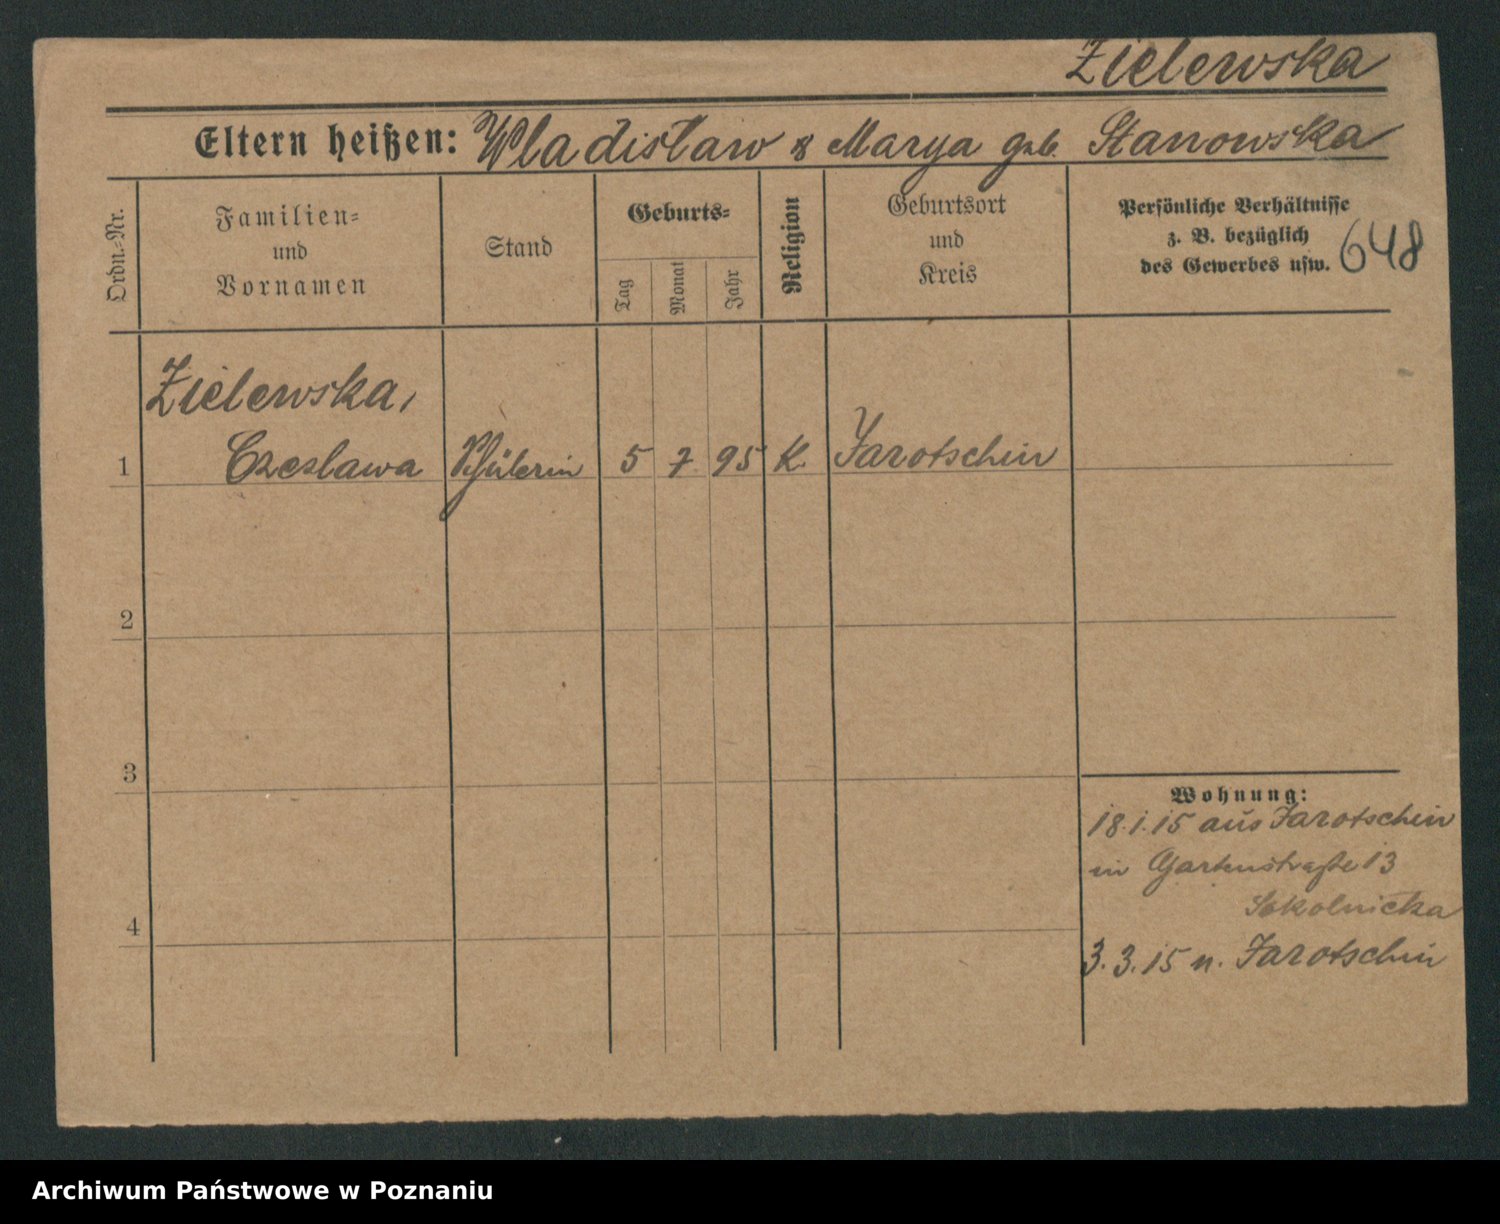 Zielewska
Eltern heißen: Wladislaw & Marya geb. Stanowska
Ordn.=Nr.
Familien=
und
Vornamen
Stand
Geburts=
Tag
Monat
Jahr
Religion
Geburtsort
und
Kreis
Persönliche Verhältnisse
z. B. bezüglich
des Gewerbes usw.
648
Zielewska,
1 Czeslawa Schülerin 5 7. 95 K. Jarotschin
2
3
4
Wohnung:
18.1.15 aus Jarotschin
in Gartenstraße 13
Sokolnicka
3.3.15 n. Jarotschin
Archiwum Państwowe w Poznaniu